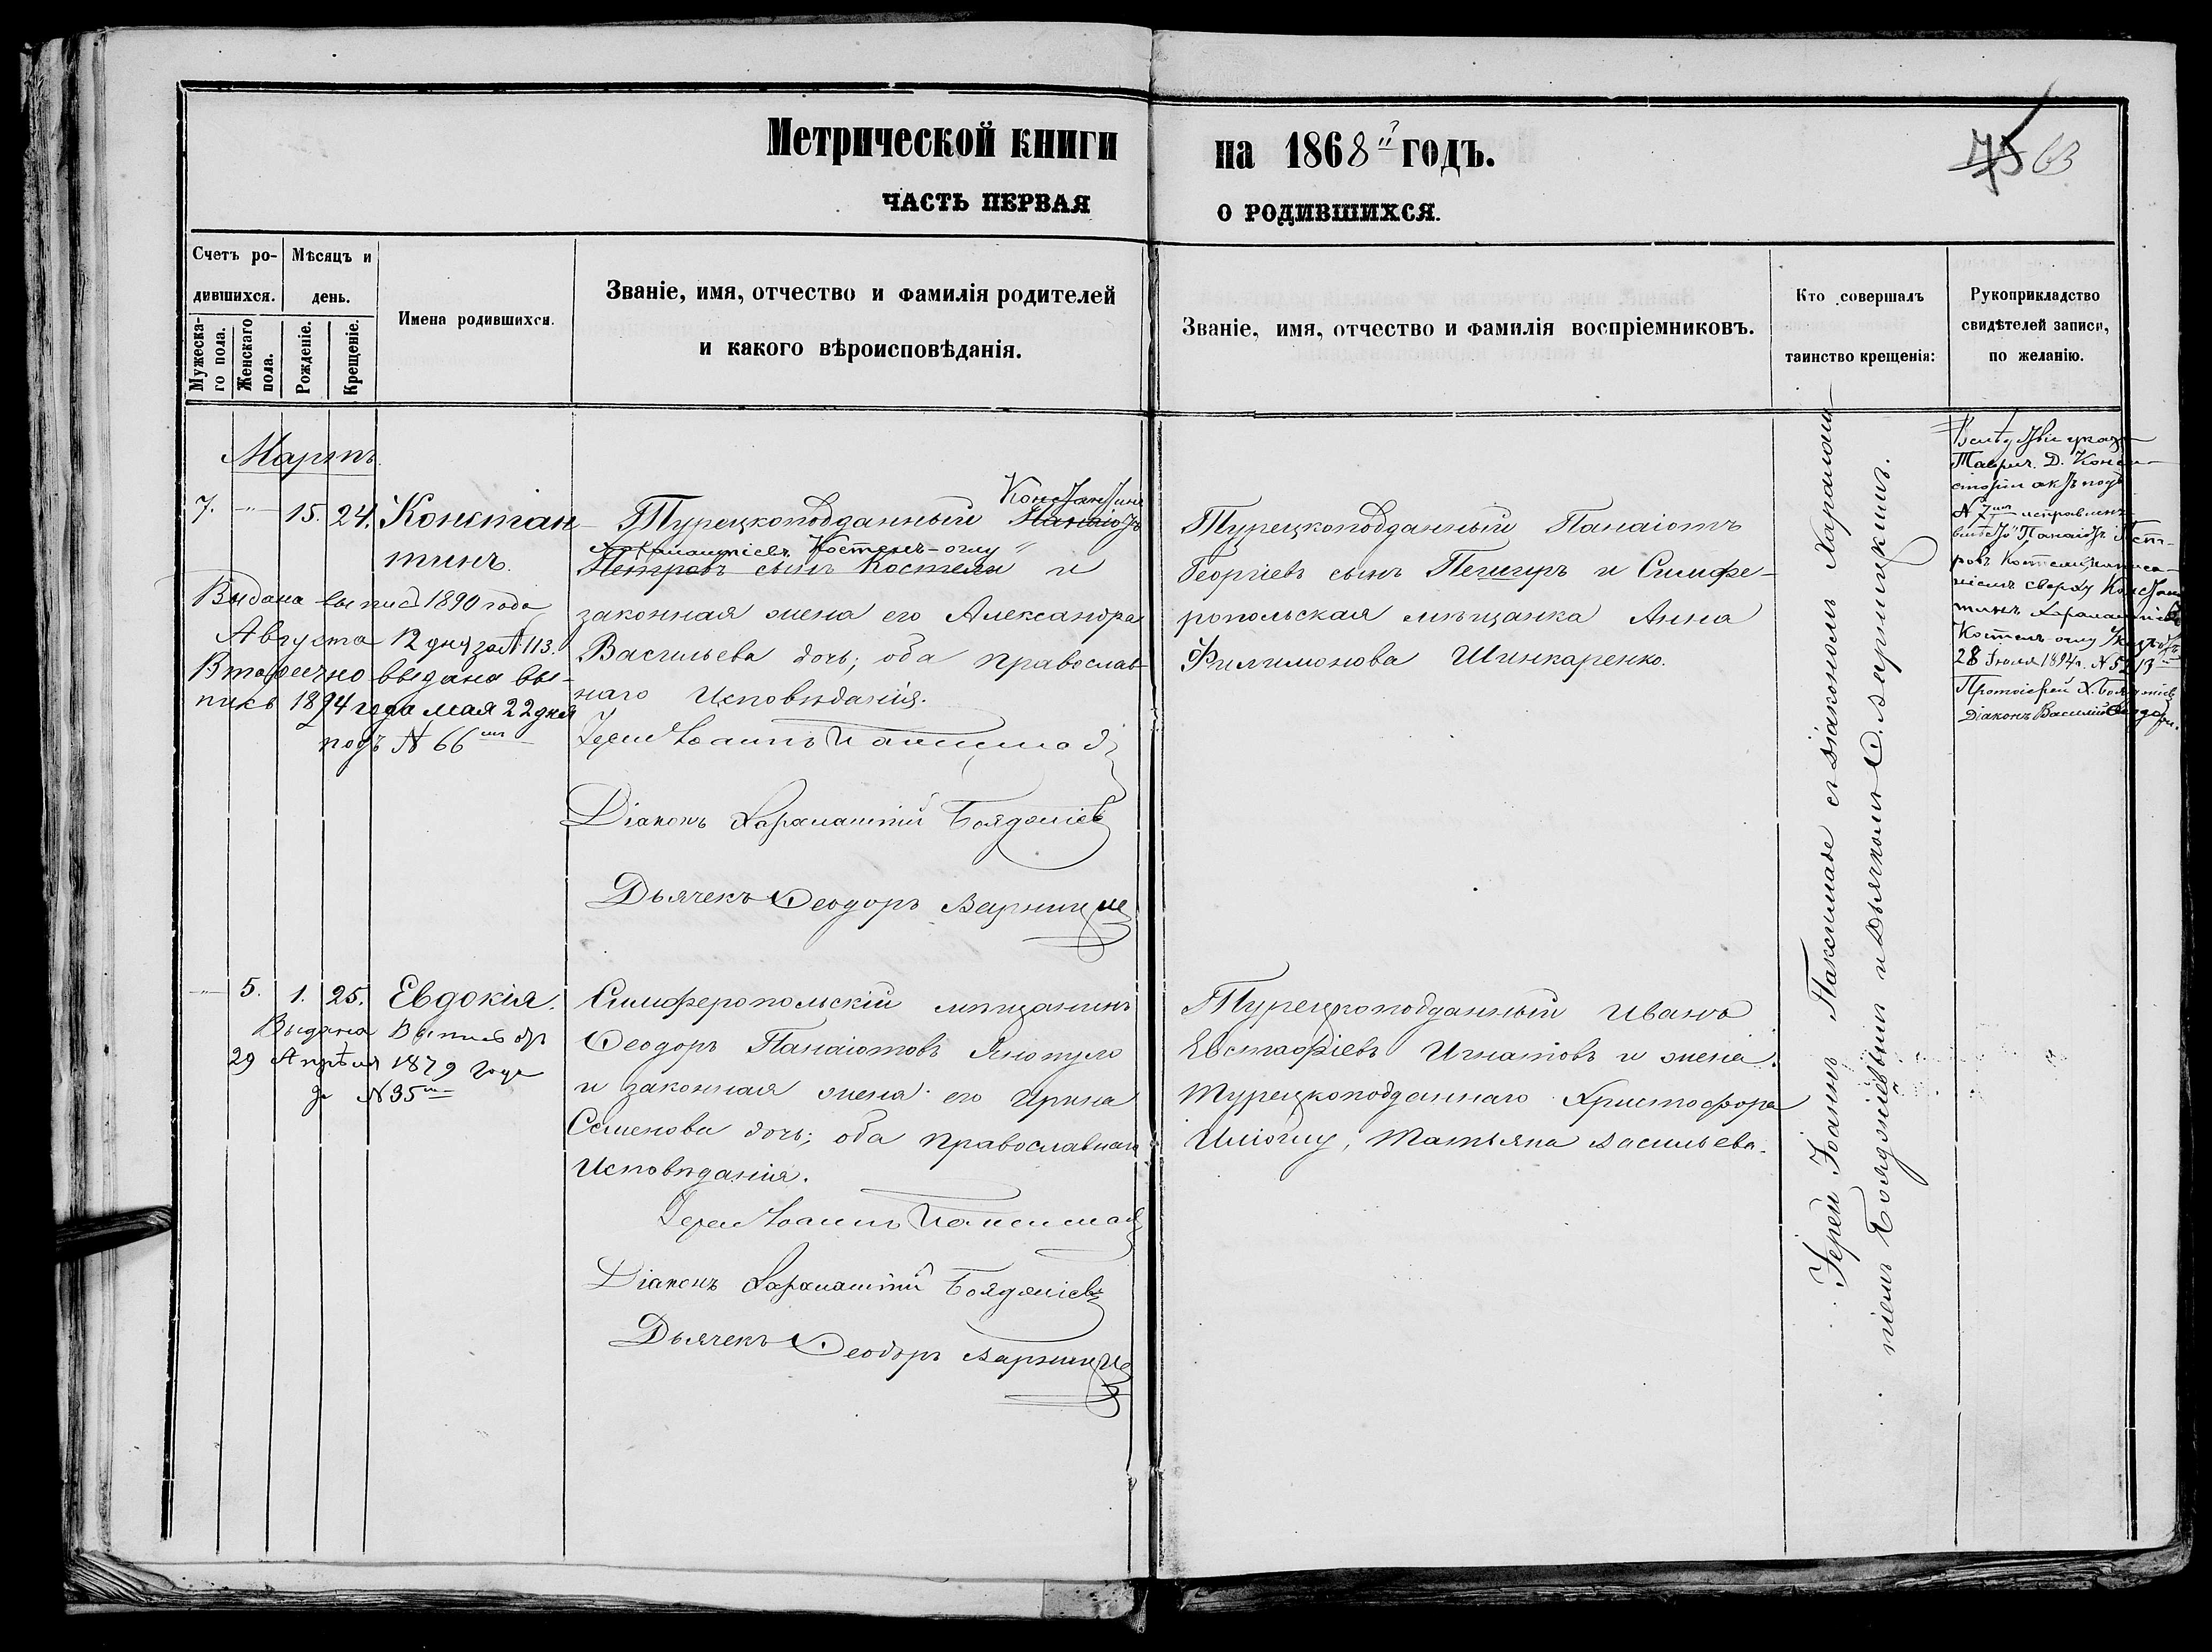 Метрической книги на 1868 годъ.
75 63
ЧАСТЬ ПЕРВАЯ О РОДИВШИХСЯ.
Счетъ ро-
дившихся.
Мужеска-
го пола.
Женскаго
пола.
Мѣсяцъ и
день.
Рожденіе.
Крещеніе.
Имена родившихся.
Званіе, имя, отчество и фамилія родителей
и какого вѣроисповѣданія.
Званіе, имя, отчество и фамилія воспріемниковъ.
Кто совершалъ
таинство крещенія:
Рукоприкладство
свидѣтелей записи,
по желанію.
Мартъ.
7. — 15. 24. Констан-
тинъ.
Выдана выпись 1890 года
Августа 12 дня за № 113.
Вторично выдана вы-
пись 1894 года мая 22 дня
подъ № 66
Константинъ
Турецкоподданный Панаіотъ
Харалампіевъ Костель-оглу
Петровъ сынъ Костели и
законная жена его Александра
Васильева дочь; оба православ-
наго Исповѣданія.
Іерей Іоаннъ Паксимади
Діаконъ Харалампій Бояджіевъ
Дьячекъ Ѳеодоръ Варницкій
Турецкоподданный Панаіотъ
Георгіевъ сынъ Пегигиръ и Симфе-
ропольская мѣщанка Анна
Филимонова Шинкаренко.
Іерей Іоаннъ Паксимаде съ діакономъ Харалам-
піемъ Бояджіевымъ и дьячкомъ Ѳ. Варницкимъ.
Вслѣдствіе указа
Таврич. Д. Конси-
сторіи актъ подъ
№ 7 исправленъ
вмѣсто Панаіотъ Пет-
ровъ Костели
сверху Констан-
тинъ Харалампіевъ
Костель-оглу Указъ отъ
28 Іюля 1894 г. № 5213
Протоіерей Х. Бояджіевъ
Діаконъ Василій
— 5. 1. 25. Евдокія.
Выдана Выпись
29 Апрѣля 1879 года
за № 35
Симферопольскій мѣщанинъ
Ѳеодоръ Панаіотовъ Янопуло
и законная жена его Ирина
Семенова дочь; оба православнаго
Исповѣданія.
Іерей Іоаннъ Паксимади
Діаконъ Харалампій Бояджіевъ
Дьячекъ Ѳеодоръ Варницкій
Турецкоподданный Иванъ
Евстафіевъ Игнатовъ и жена
Турецкоподданнаго Христофора
Иліоглу, Татьяна Васильева.